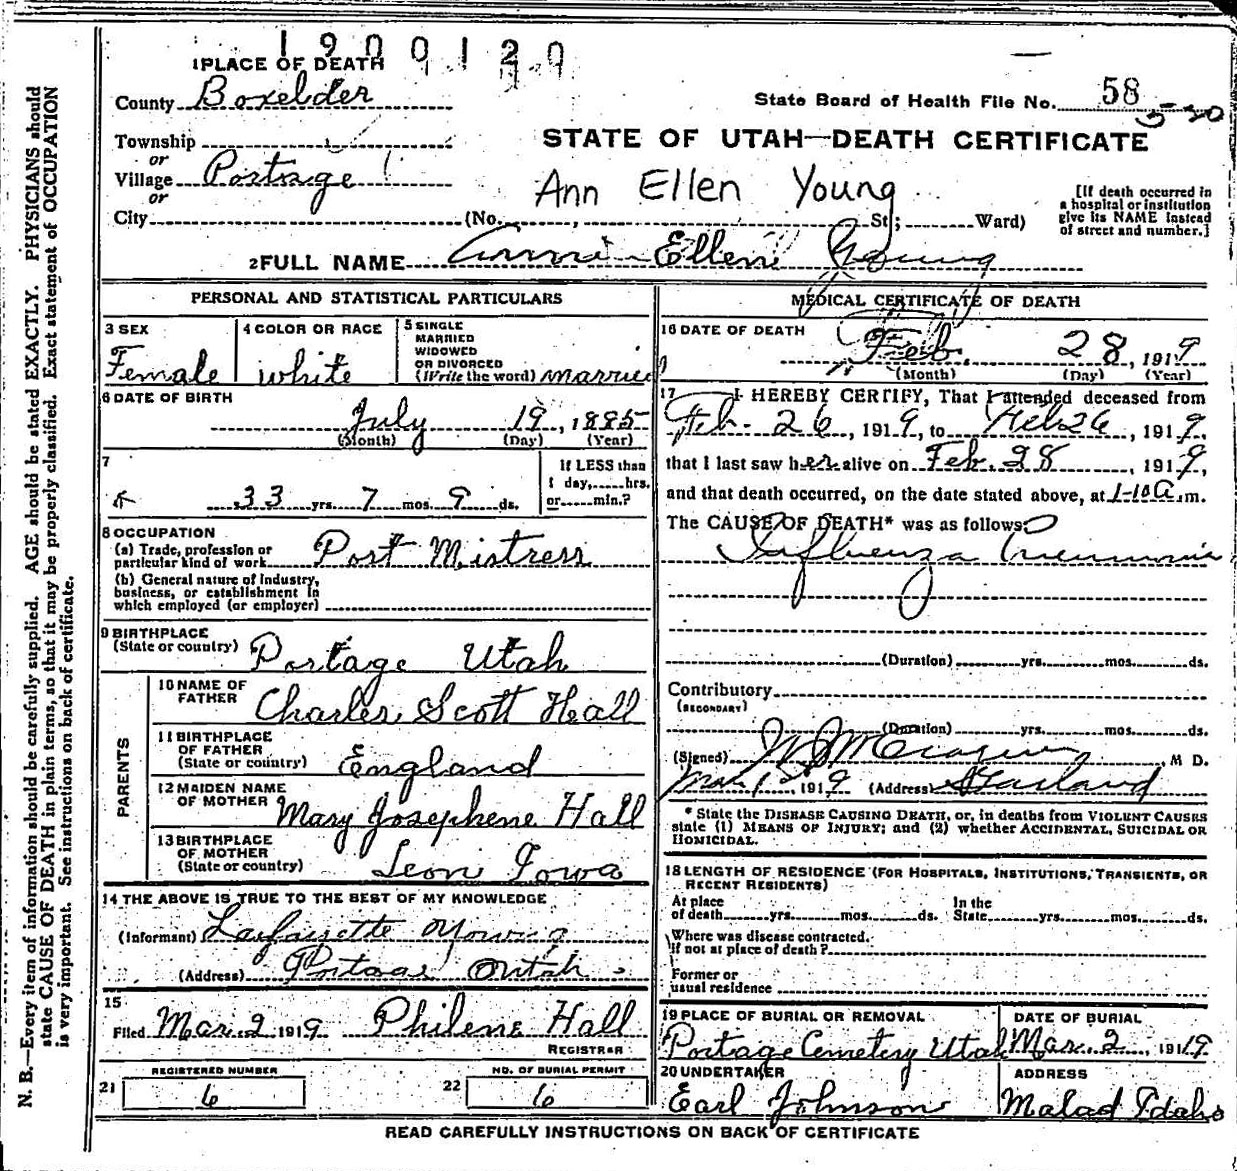 1900120
1 PLACE OF DEATH
County Boxelder
State Board of Health File No. 58
Township
or
Village Portage
or
City (No. St; Ward)
STATE OF UTAH—DEATH CERTIFICATE
Ann Ellen Young
[If death occurred in
a hospital or institution
give its NAME instead
of street and number.]
2 FULL NAME Annie Ellen Young
PERSONAL AND STATISTICAL PARTICULARS
3 SEX
Female
4 COLOR OR RACE
white
5 SINGLE
MARRIED
WIDOWED
OR DIVORCED
(Write the word) married
6 DATE OF BIRTH
July 19, 1885
(Month) (Day) (Year)
7
33 yrs. 7 mos. 9 ds.
If LESS than
1 day, hrs.
or min.?
8 OCCUPATION
(a) Trade, profession or
particular kind of work Post Mistress
(b) General nature of industry,
business, or establishment in
which employed (or employer)
9 BIRTHPLACE
(State or country) Portage Utah
PARENTS
10 NAME OF
FATHER Charles Scott Hall
11 BIRTHPLACE
OF FATHER
(State or country) England
12 MAIDEN NAME
OF MOTHER Mary Josephene Hall
13 BIRTHPLACE
OF MOTHER
(State or country) Leon Iowa
14 THE ABOVE IS TRUE TO THE BEST OF MY KNOWLEDGE
(Informant) Lafayette Young
(Address) Portage Utah
15
Filed Mar. 2 1919 Philene Hall
REGISTRAR
REGISTERED NUMBER
21 6
NO. OF BURIAL PERMIT
22 6
MEDICAL CERTIFICATE OF DEATH
16 DATE OF DEATH
Feb. 28, 1919
(Month) (Day) (Year)
17 I HEREBY CERTIFY, That I attended deceased from
Feb. 26, 1919, to Feb 26, 1919,
that I last saw her alive on Feb. 28, 1919,
and that death occurred, on the date stated above, at 1-10 a. m.
The CAUSE OF DEATH* was as follows:
Influenza Pneumonia
(Duration) yrs. mos. ds.
Contributory
(SECONDARY)
(Duration) yrs. mos. ds.
(Signed) M D.
Mar 1st, 1919 (Address) Garland
* State the DISEASE CAUSING DEATH, or, in deaths from VIOLENT CAUSES
state (1) MEANS OF INJURY; and (2) whether ACCIDENTAL, SUICIDAL OR
HOMICIDAL.
18 LENGTH OF RESIDENCE (FOR HOSPITALS, INSTITUTIONS, TRANSIENTS, OR
RECENT RESIDENTS)
At place
of death yrs. mos. ds.
In the
State yrs. mos. ds.
Where was disease contracted.
If not at place of death?
Former or
usual residence
19 PLACE OF BURIAL OR REMOVAL
Portage Cemetery Utah
DATE OF BURIAL
Mar. 2, 1919
20 UNDERTAKER
Earl Johnson
ADDRESS
Malad Idaho
READ CAREFULLY INSTRUCTIONS ON BACK OF CERTIFICATE
N. B.—Every item of information should be carefully supplied. AGE should be stated EXACTLY. PHYSICIANS should
state CAUSE OF DEATH in plain terms, so that it may be properly classified. Exact statement of OCCUPATION
is very important. See instructions on back of certificate.